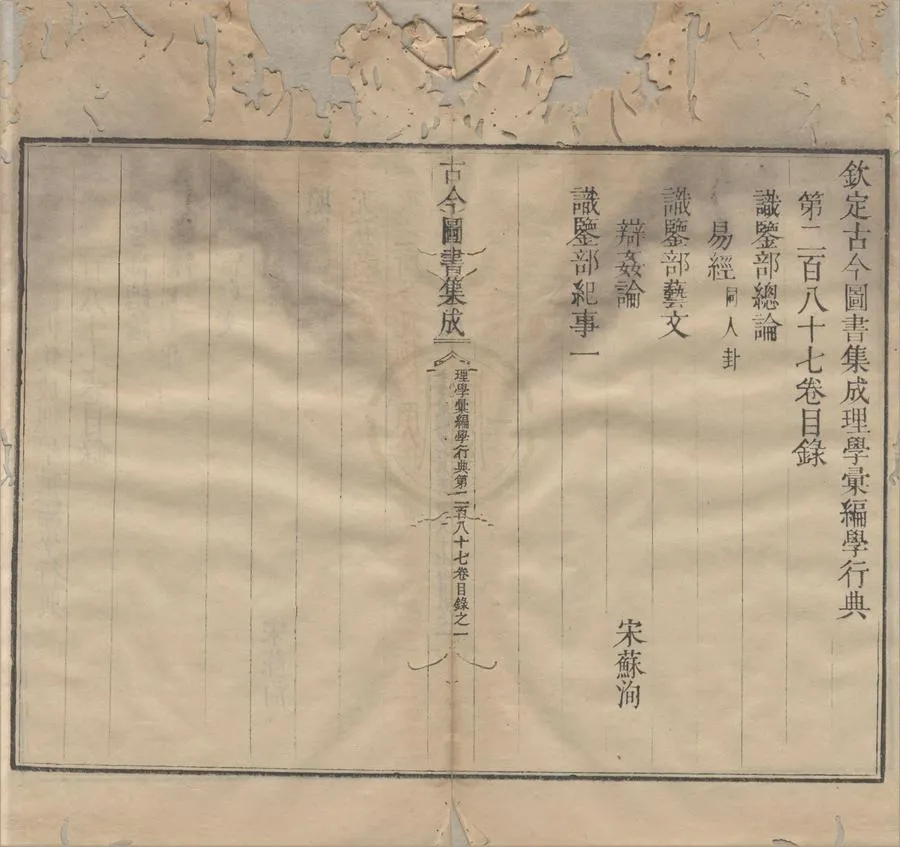 欽定古今圖書集成理學彙編學行典
第二百八十七卷目錄
識鑒部總論
易經同人卦
識鑒部藝文
辯姦論 宋蘇洵
識鑒部紀事一
古今圖書集成
理學彙編學行典第二百八十七卷目錄之一